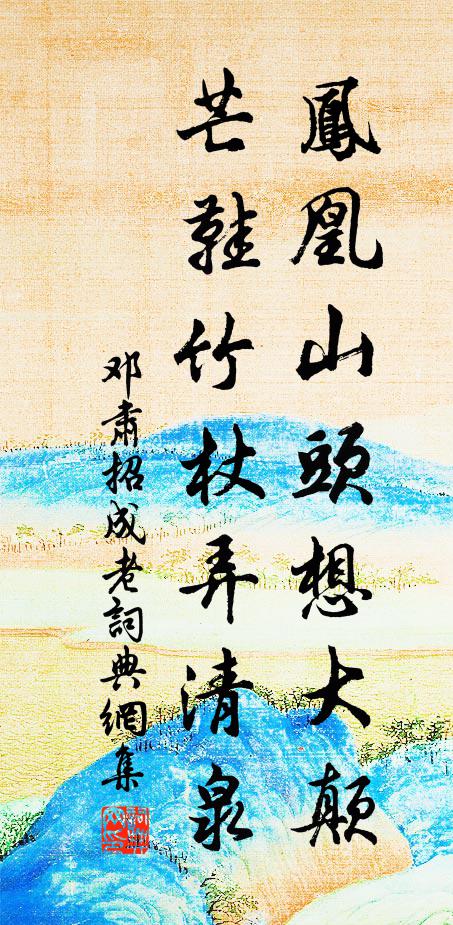 鳳凰山頭想大顛
芒鞋竹杖弄清泉
邓肅招成老詞典網集